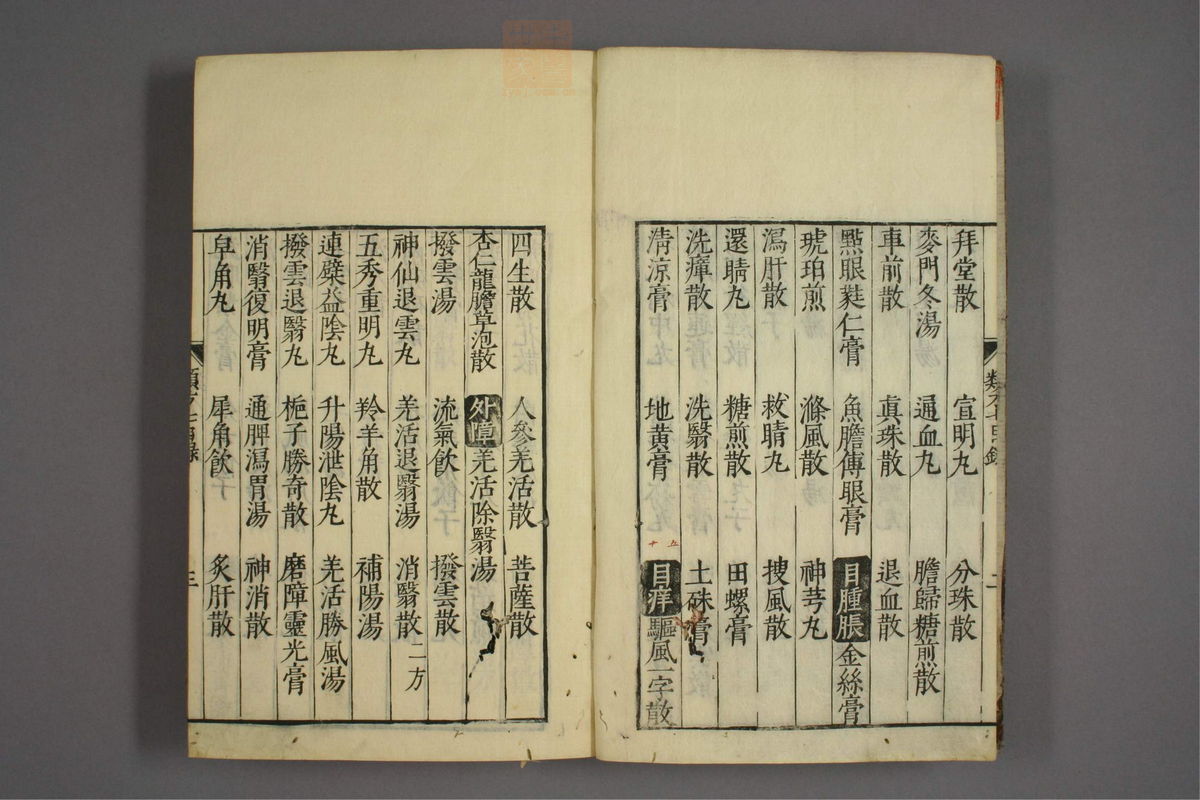 拜堂散 宣明丸 分珠散
麥門冬湯 通血丸 膽歸糖煎散
車前散 真珠散 退血散
點眼蕤仁膏 魚膽傅眼膏 目腫脹 金絲膏
琥珀煎 滌風散 神芎丸
瀉肝散 救睛丸 搜風散
還睛丸 糖煎散 田螺膏
洗瘴散 洗翳散 土硃膏
清涼膏 地黃膏 目痒 驅風一字散
四生散 人參羌活散 菩薩散
杏仁龍膽草泡散 外障 羌活除翳湯
撥雲湯 流氣飲 撥雲散
神仙退雲丸 羌活退翳湯 消翳散 二方
五秀重明丸 羚羊角散 補陽湯
連檗益陰丸 升陽泄陰丸 羌活勝風湯
撥雲退翳丸 梔子勝奇散 磨障靈光膏
消翳復明膏 通脾瀉胃湯 神消散
皁角丸 犀角飲 炙肝散
三